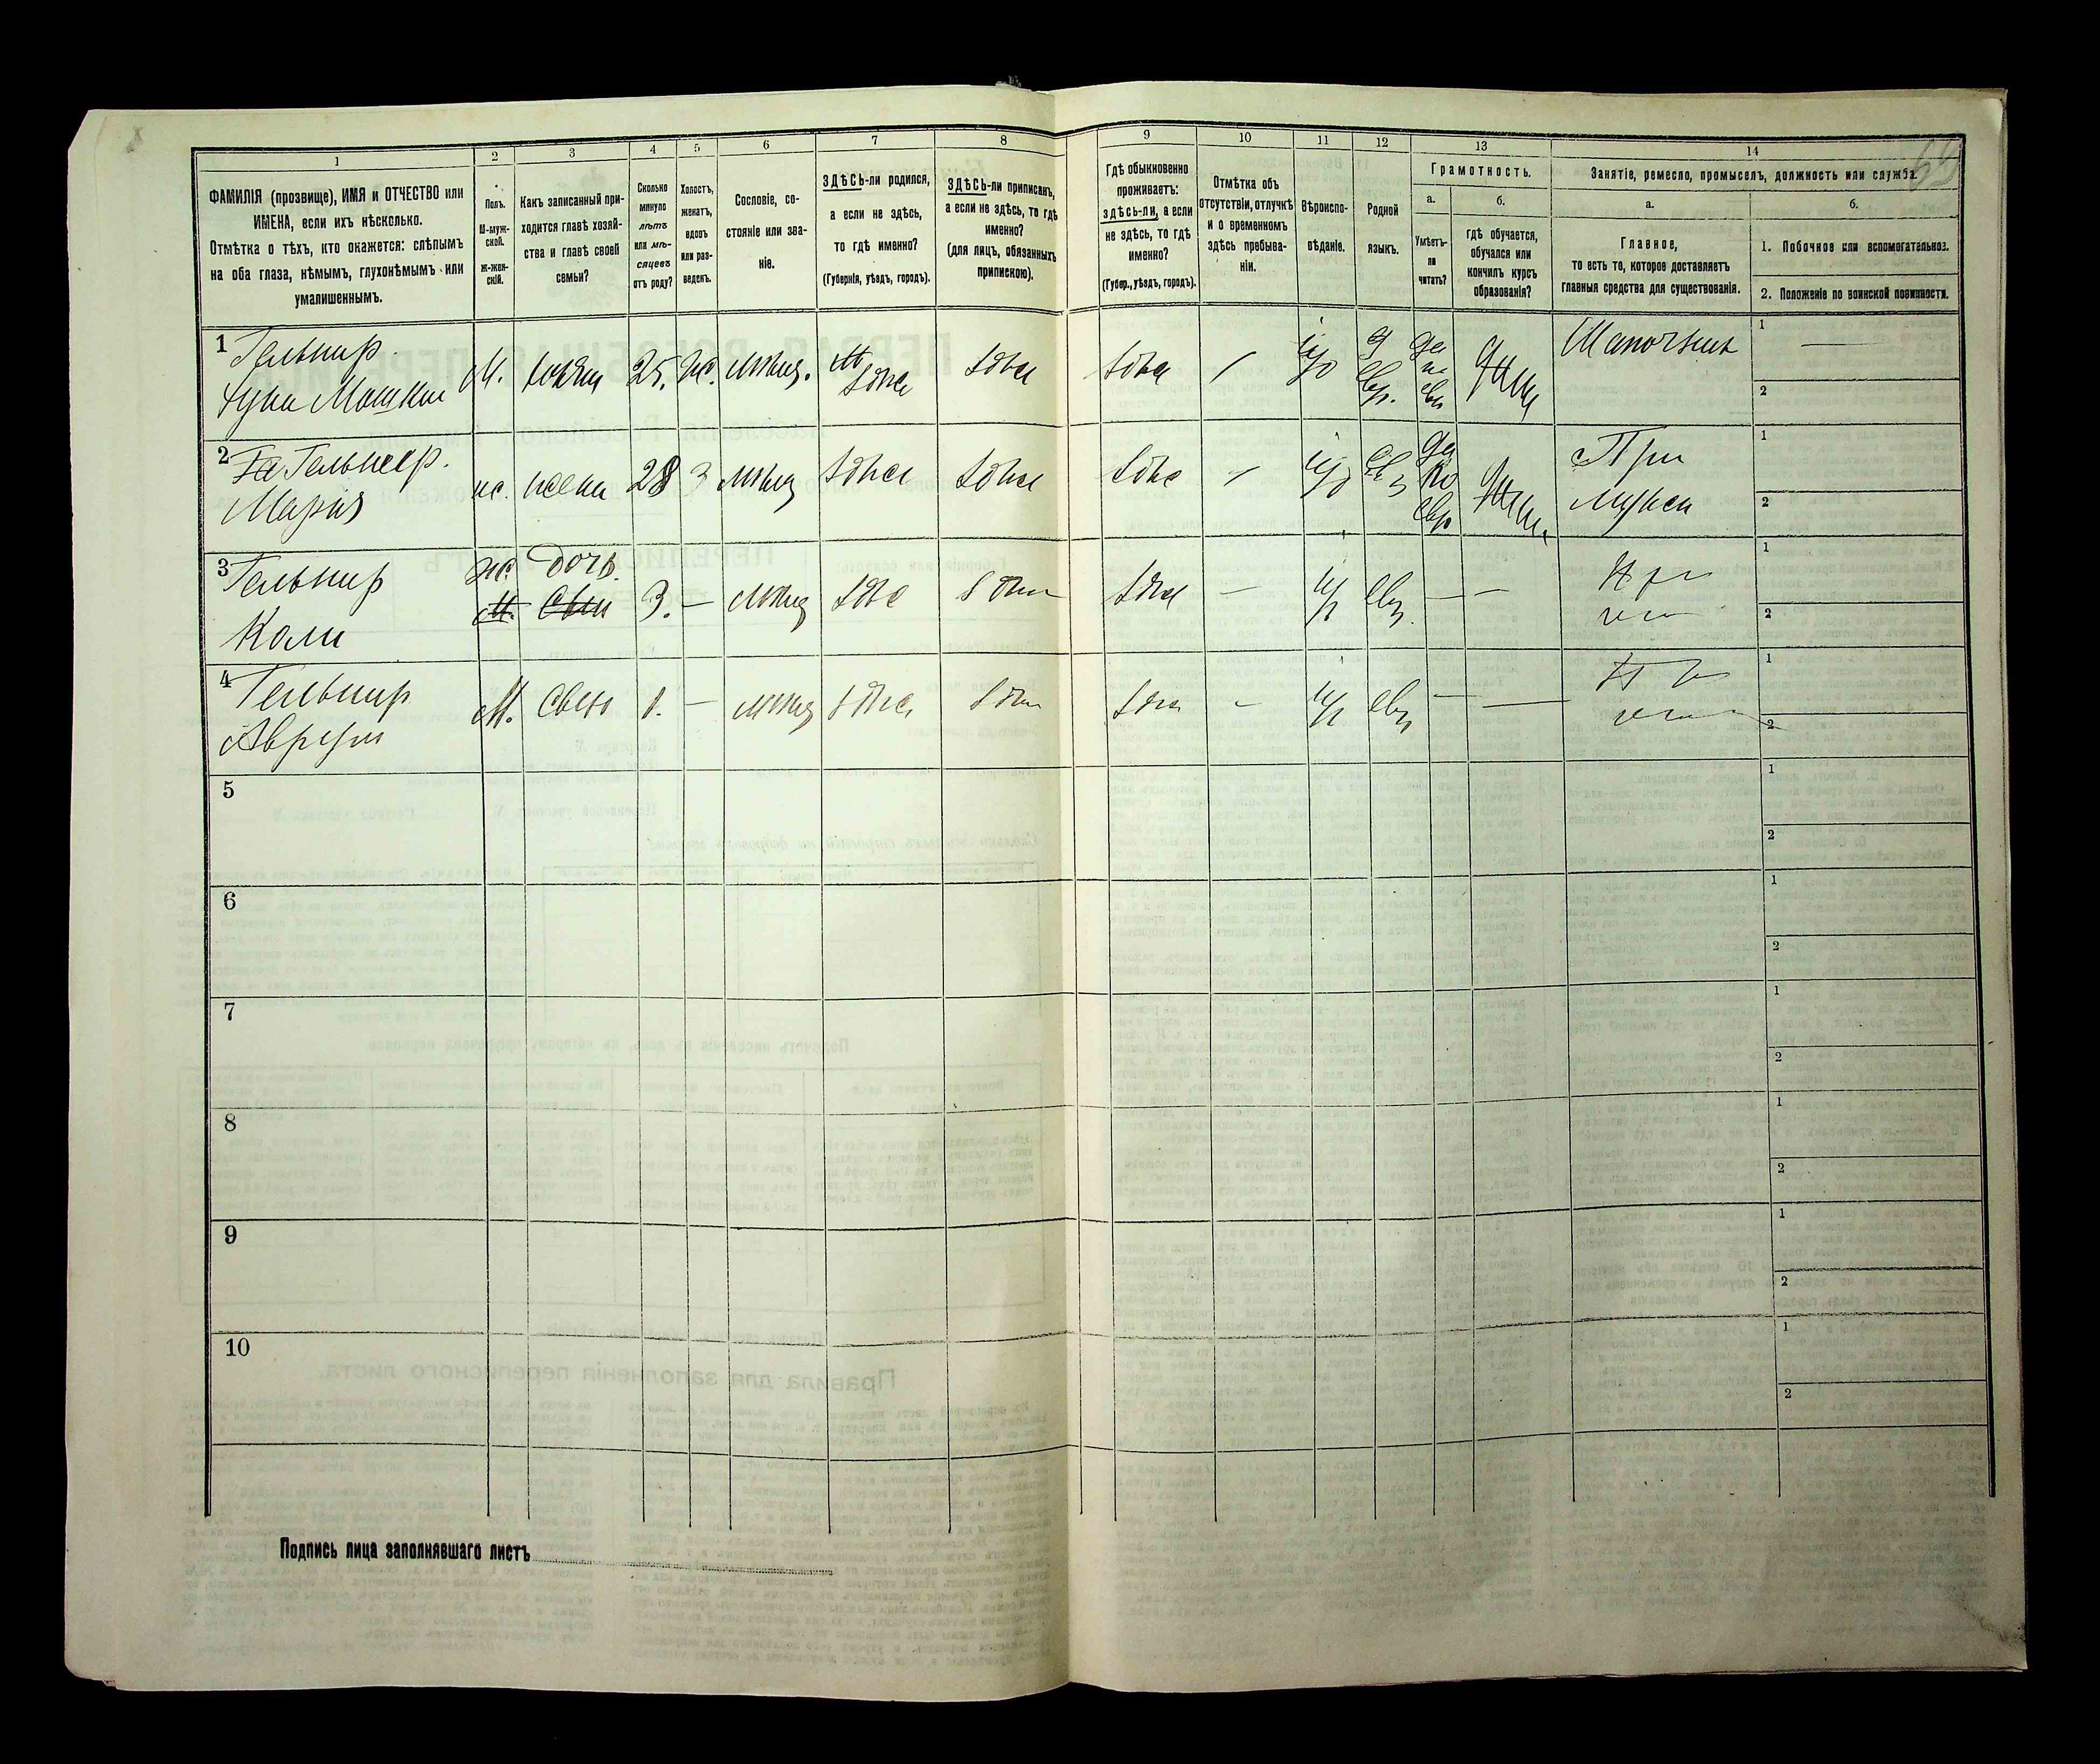 1
2
3
4
5
6
7
8
9
10
11
12
13
14
ФАМИЛІЯ (прозвище), ИМЯ и ОТЧЕСТВО или
ИМЕНА, если ихъ нѣсколько.
Отмѣтка о тѣхъ, кто окажется: слѣпымъ
на оба глаза, нѣмымъ, глухонѣмымъ или
умалишеннымъ.
Полъ.
М-муж-
ской.
Ж-жен-
скій.
Какъ записанный при-
ходится главѣ хозяй-
ства и главѣ своей
семьи?
Сколько
минуло
лѣтъ
или мѣ-
сяцевъ
отъ роду?
Холостъ,
женатъ,
вдовъ
или раз-
веденъ.
Сословіе, со-
стояніе или зва-
ніе.
ЗДѢСЬ-ли родился,
а если не здѣсь,
то гдѣ именно?
(Губернія, уѣздъ, городъ).
ЗДѢСЬ-ли приписанъ,
а если не здѣсь, то гдѣ
именно?
(для лицъ, обязанныхъ
припискою).
Гдѣ обыкновенно
проживаетъ:
здѣсь-ли, а если
не здѣсь, то гдѣ
именно?
(Губер., уѣздъ, городъ).
Отмѣтка объ
отсутствіи, отлучкѣ
и о временномъ
здѣсь пребыва-
ніи.
Вѣроиспо-
вѣданіе.
Родной
языкъ.
Грамотность.
а.
б.
Умѣетъ-
ли
читать?
гдѣ обучается,
обучался или
кончилъ курсъ
образованія?
Занятіе, ремесло, промыселъ, должность или служба.
а.
б.
Главное,
то есть то, которое доставляетъ
главныя средства для существованія.
1. Побочное или вспомогательное.
2. Положеніе по воинской повинности.
1 Гельнир
Мошкии М. хозяин 25. же. мѣщ. здѣсь здѣсь здѣсь іуд евр. да Шапочник
1
2
2 Гельнер.
Мария же. жена 28 З мѣщ здѣсь здѣсь здѣсь іуд да При
мужи
1
2
3 Гельнир
ж. дочь
М. Сын 3. — мѣщ здѣсь здѣсь здѣсь — іуд евр. — — При
1
2
4 Гельнир
М. Сын 1. — мѣщ здѣсь здѣсь здѣсь — іуд евр — —
1
2
5
1
2
6
1
2
7
1
2
8
1
2
9
1
2
10
1
2
Подпись лица заполнявшаго листъ